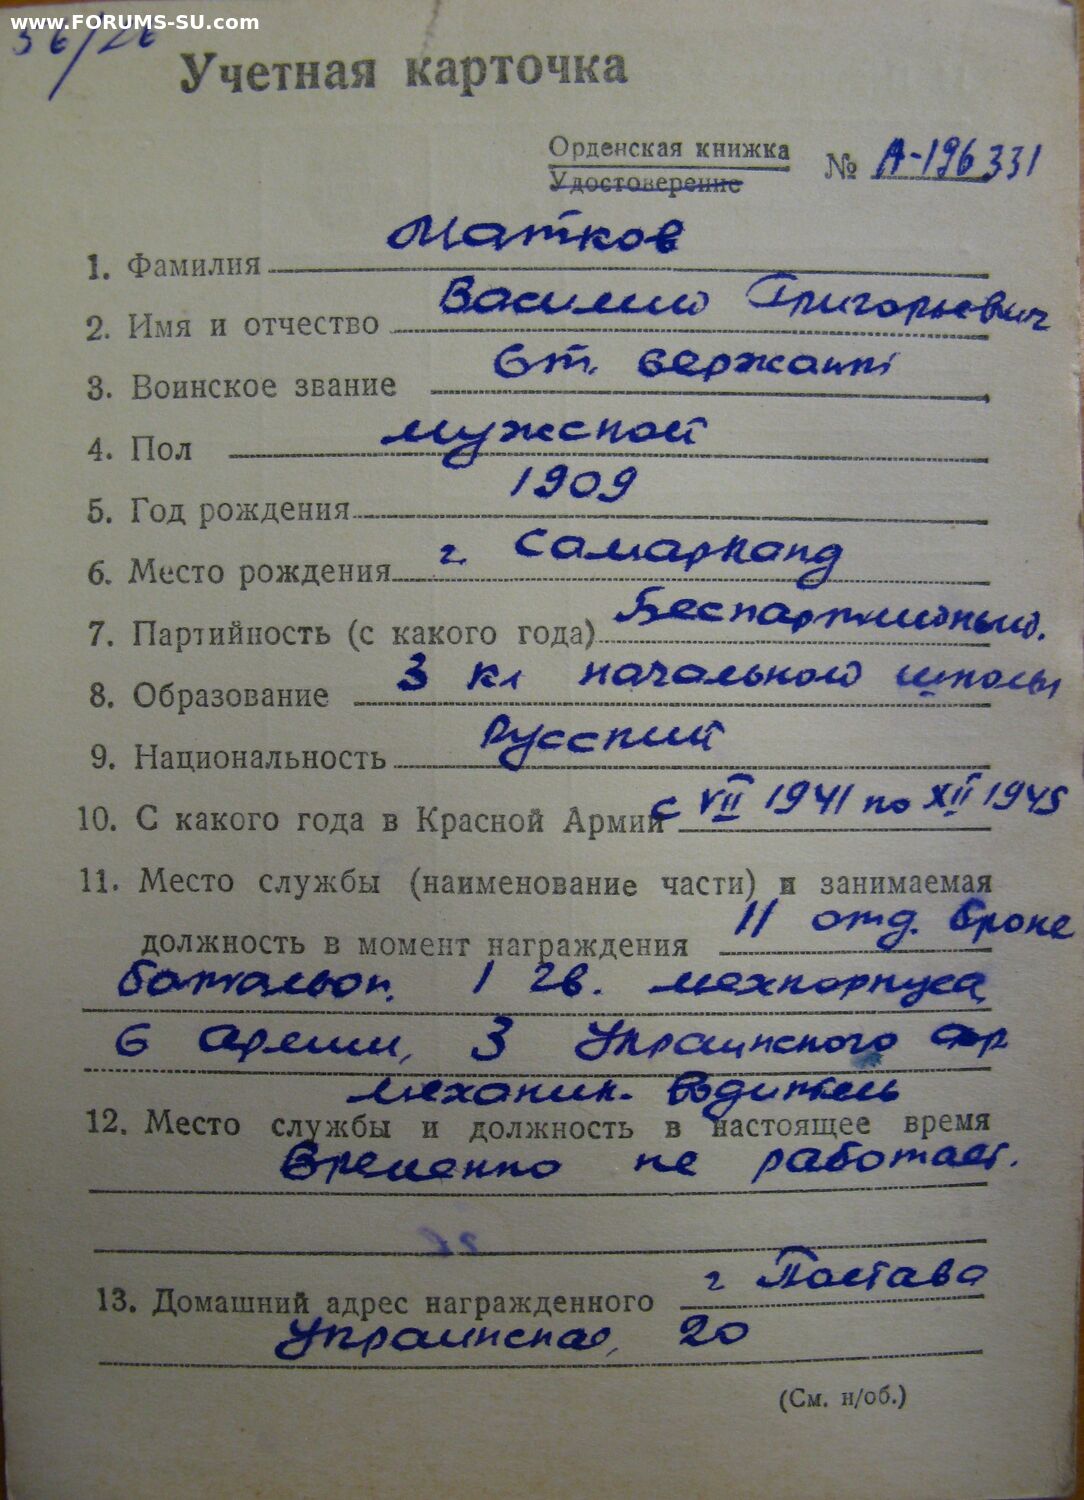 www.FORUMS-SU.com
36/26
Учетная карточка
Орденская книжка
Удостоверение
№ А-196331
1. Фамилия Матков
2. Имя и отчество Василий Григорьевич
3. Воинское звание Ст. сержант
4. Пол мужской
5. Год рождения 1909
6. Место рождения г. Самарканд
7. Партийность (с какого года) Беспартийный.
8. Образование 3 кл начальной школы
9. Национальность Русский
10. С какого года в Красной Армии с VII 1941 по XII 1945
11. Место службы (наименование части) и занимаемая
должность в момент награждения 11 отд. броне
батальон. 1 гв. мехкорпуса,
6 Армии, 3 Украинского фр
механик. водитель
12. Место службы и должность в настоящее время
Временно не работает.
13. Домашний адрес награжденного г Постава
Украинская, 20
(См. н/об.)